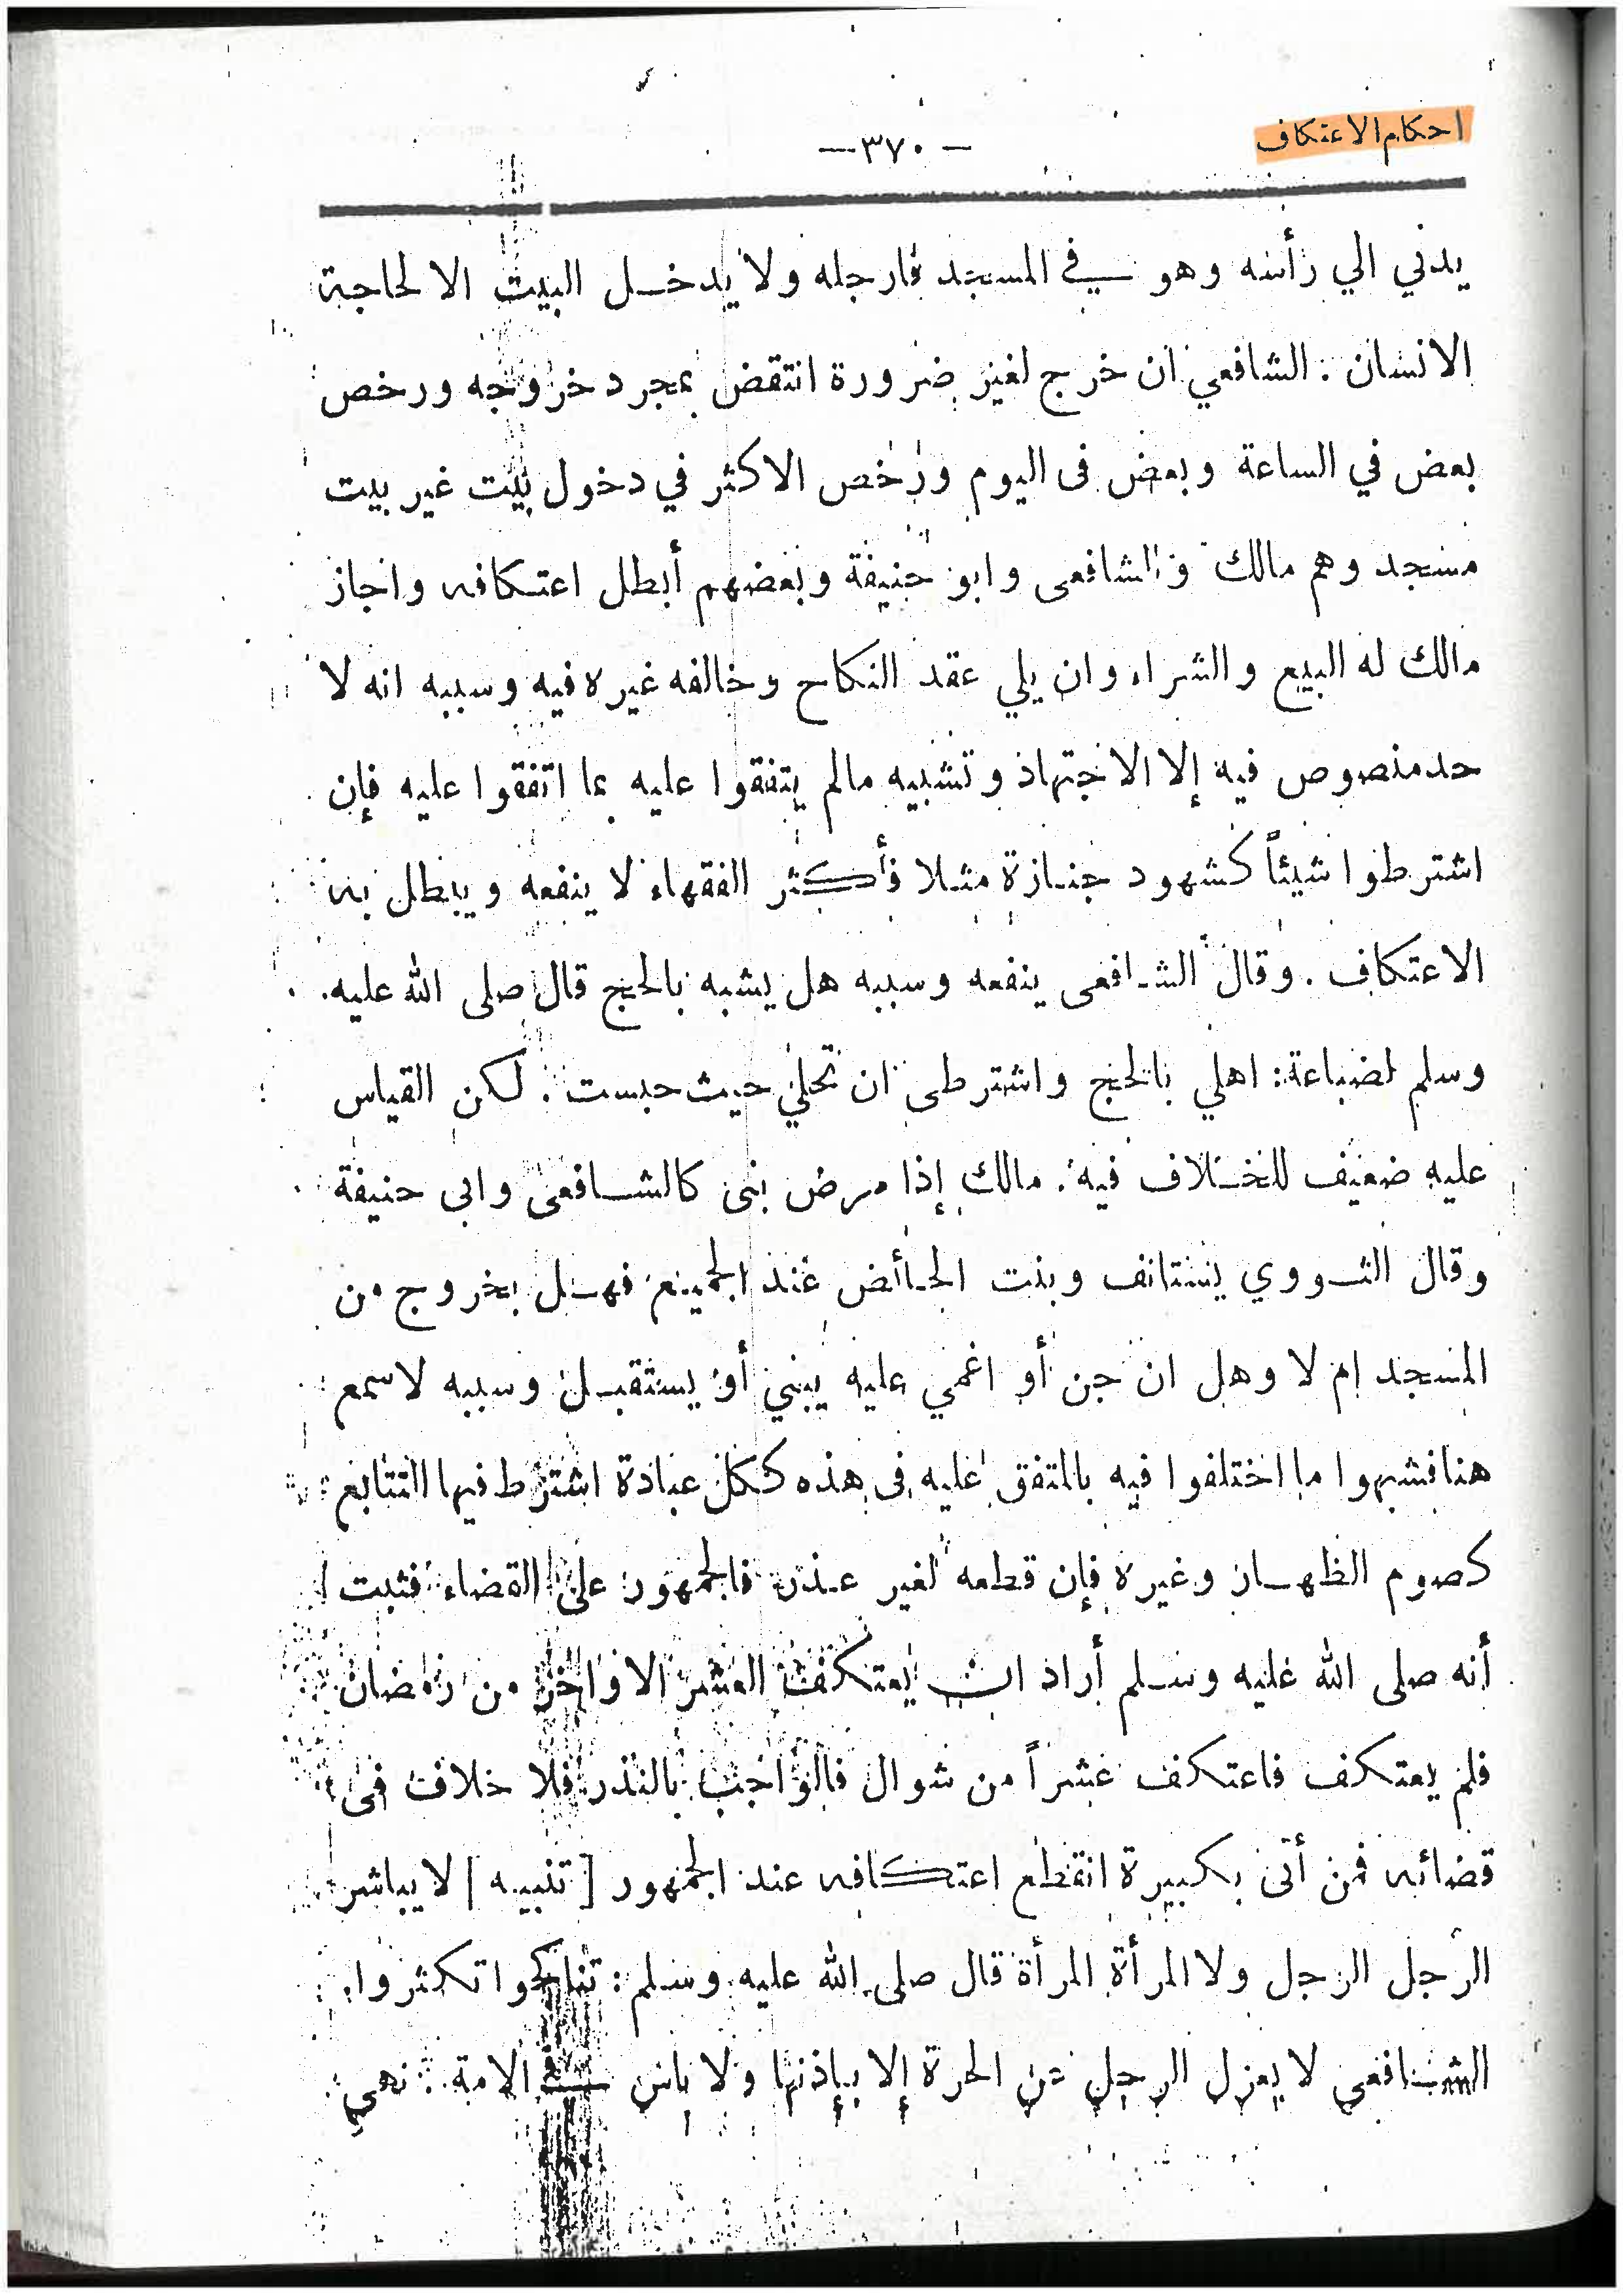 احكام الاعتكاف
— ٣٧٠ —
يدني الي رأسه وهو في المسجد فارجله ولا يدخل البيت الا لحاجة
الانسان : الشافعي ان خرج لغير ضرورة انتقض بمجرد خروجه ورخص
بعض في الساعة وبعض فى اليوم ورخص الاكثر في دخول بيت غير بيت
مسجد وهم مالك والشافعى وابو حنيفة وبعضهم أبطل اعتكافه واجاز
مالك له البيع والشراء وان يلي عقد النكاح وخالفه غيره فيه وسببه انه لا
حد منصوص فيه إلا الاجتهاد وتشبيه مالم يتفقوا عليه بما اتفقوا عليه فإن
اشترطوا شيئاً كشهود جنازة مثلا فأكثر الفقهاء لا ينفعه ويبطل به
الاعتكاف . وقال الشافعى ينفعه وسببه هل يشبه بالحج قال صلى الله عليه
وسلم لضباعة : اهلي بالحج واشترطى ان تحلي حيث حبست . لكن القياس
عليه ضعيف للخلاف فيه . مالك إذا مرض بنى كالشافعى وابى حنيفة
وقال الثووي يستانف وبنت الحائض عند الجميع فهل بخروج من
المسجد ام لا وهل ان جن أو اغمي عليه يبني أو يستقبل وسببه لا سمع
هنا فشبهوا ما اختلفوا فيه بالمتفق عليه فى هذه ككل عبادة اشترط فيها التتابع
كصوم الظهار وغيره فإن قطعه لغير عذر فالجمهور على القضاء فثبت
أنه صلى الله عليه وسلم أراد ان يعتكف العشر الاواخر من رمضان
فلم يعتكف فاعتكف عشراً من شوال فالواجب بالنذر فلا خلاف فى
قضائه فمن أتى بكبيرة انقطع اعتكافه عند الجمهور [ تنبيه ] لا يباشر
الرجل الرجل ولا المرأة المرأة قال صلى الله عليه وسلم : تناكحوا تكثروا
الشافعى لا يعزل الرجل عن الحرة إلا بإذنها ولا باس في الامة : نهي